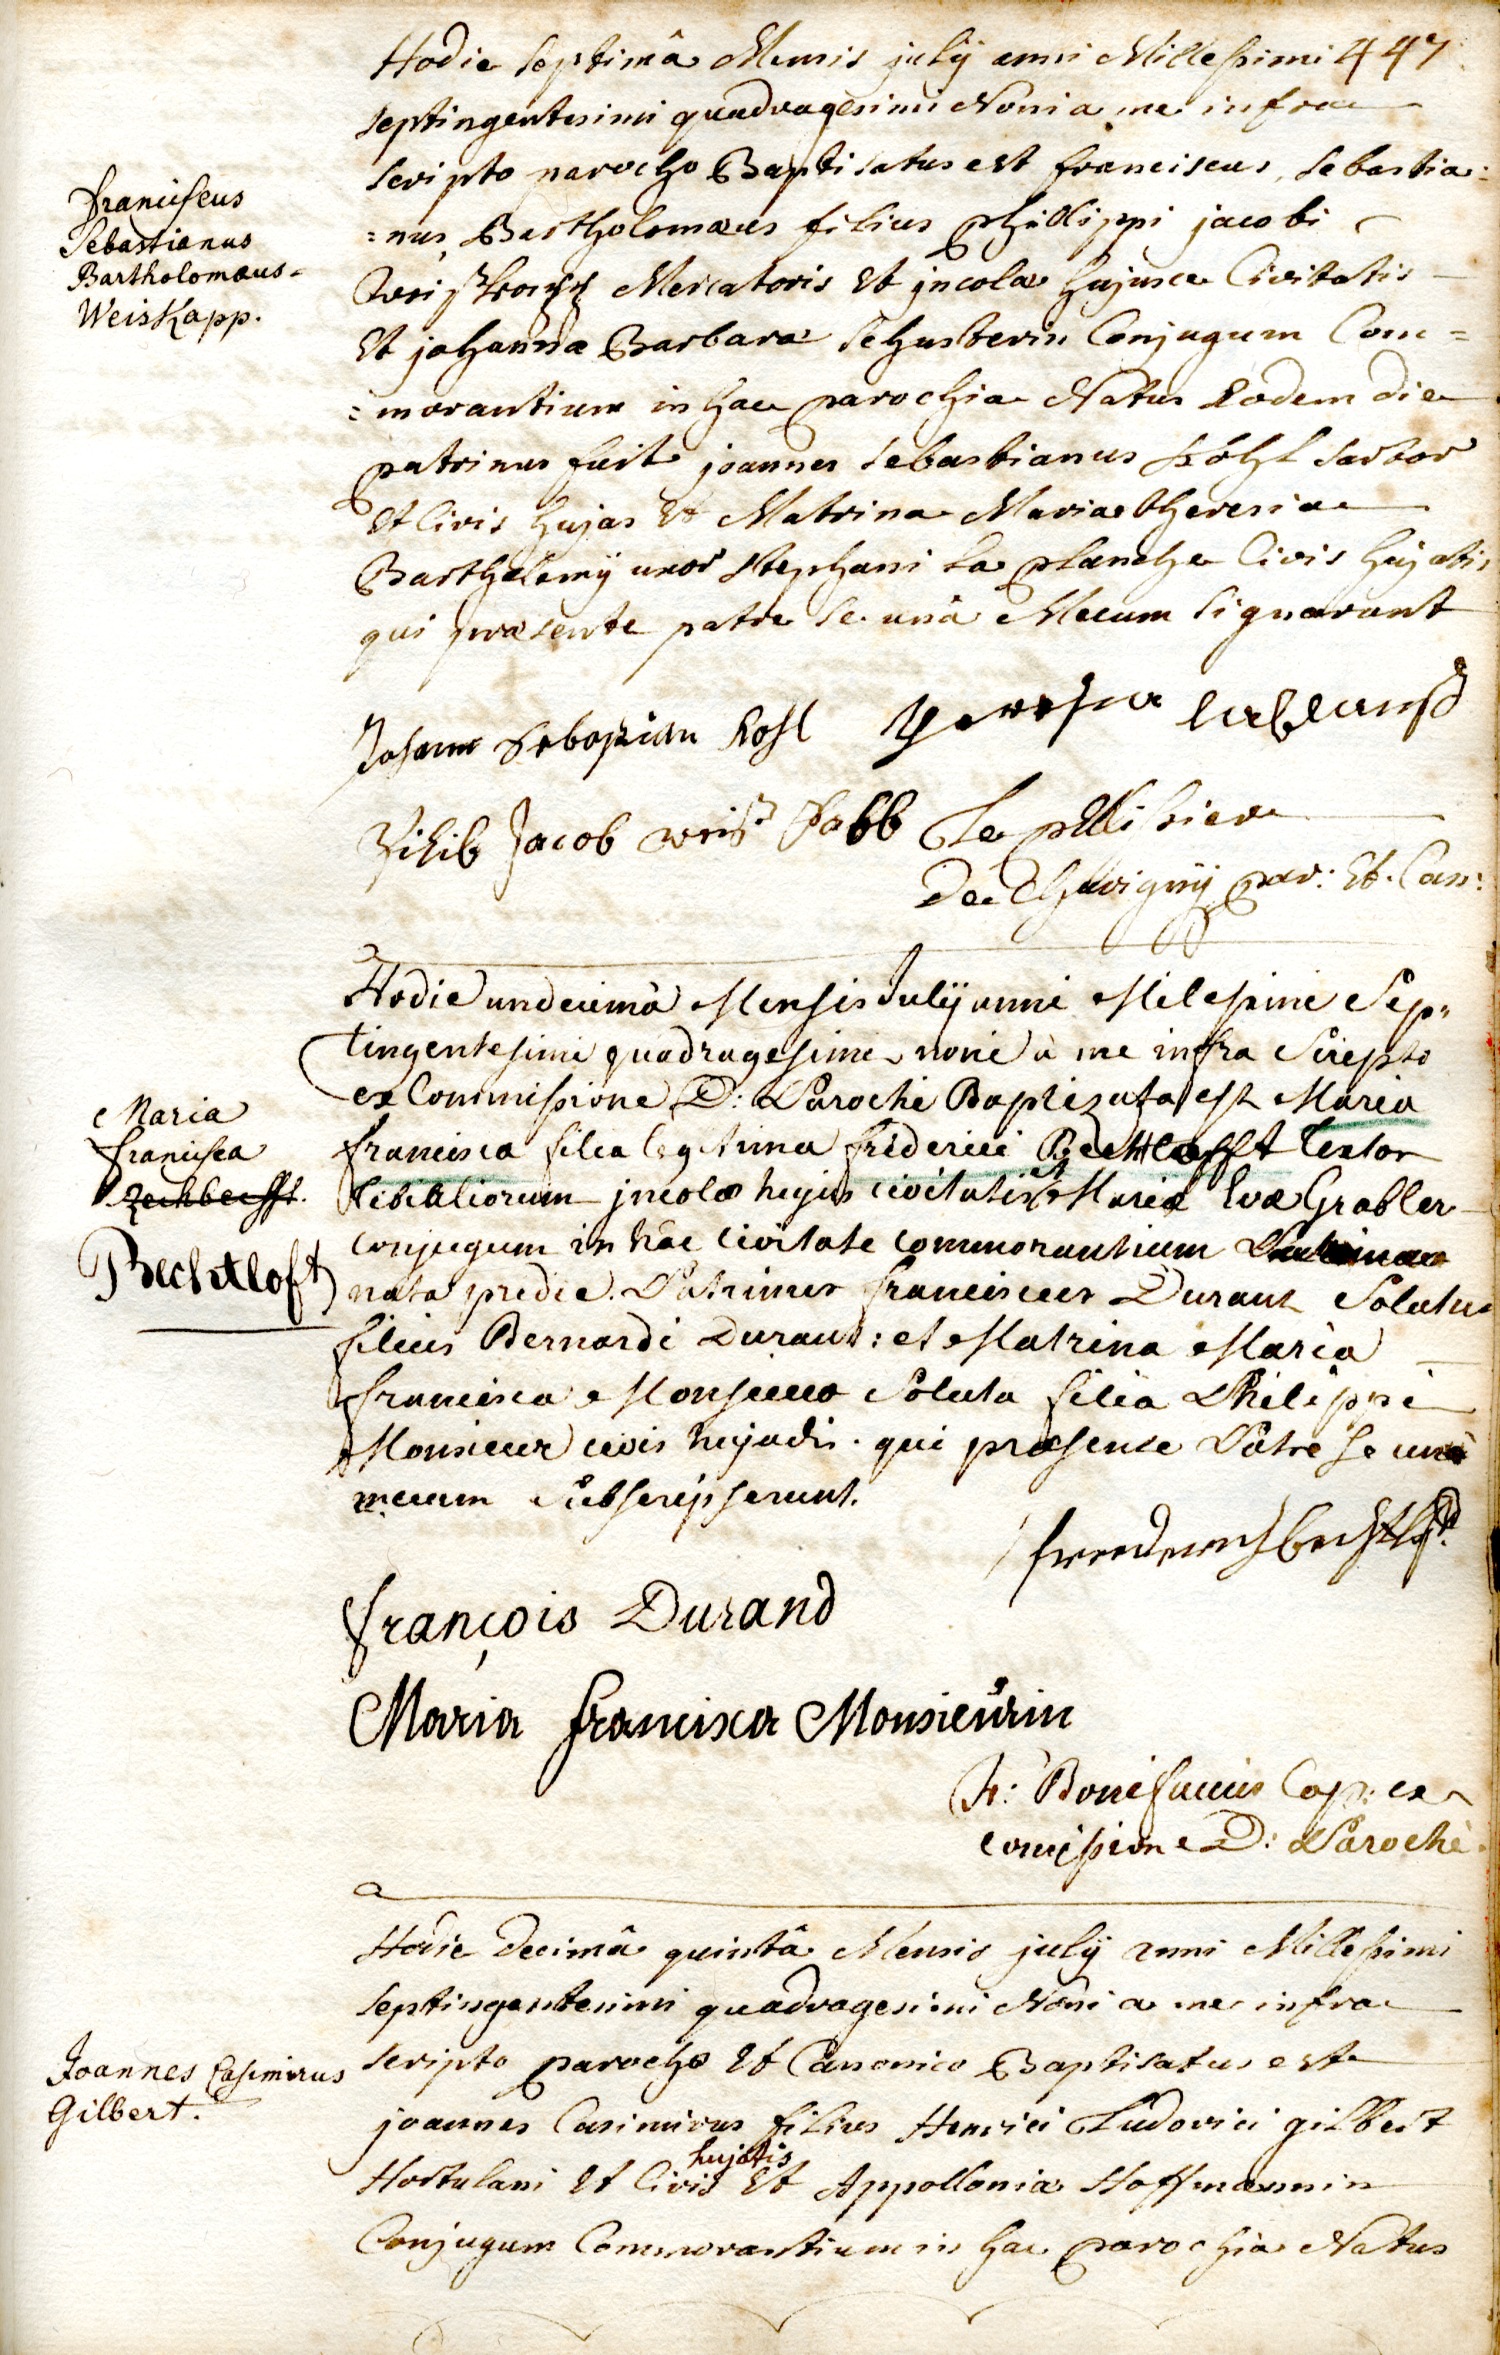 447
Hodie septimâ Mensis julÿ anni Millesimi
septingentesimi quadragesimi Noni a me infra
scripto parocho Baptisatus est franciscus, sebastia=
=nus Bartholomæus filius phillippi jacobi
Weiskopp Mercatoris Et jncolæ hujusce Civitatis
Et johannæ Barbaræ schusterin Conjugum Com=
=morantium in hac parochia Natus Eodem die
patrinus fuit joannes sebastianus kohl sartor
Et Civis hujas Et Matrina Maria theresia
Barthelemÿ uxor stephani la planche Civis hujatis
qui præsente patre se unà Mecum signarunt
franciscus
Sebastianus
Bartholomæus
Weiskapp.
Johann Sebastian Kohl
Philib Jacob weis Kabb Le pellisier
De Chevignÿ par: Et. Can:
Hodie undecimâ Mensis Julÿ anni Milesimi Sep=
tingentesimi quadragesimi noni à me infra Scripto
ex Commissione D: Parochi Baptizata est Maria
francisca filia legitima friderici Bechtlofft textor
tibialiorum jncolæ hujus civitatis et Mariæ Evæ Grabler
conjugum in hâc civitate commorantium
nata pridie. Patrinus franciscus Durant Solutus
filius Bernardi Durant: et Matrina Maria
francisca Monsieur Soluta filia Philippi
Monsieur civis hujadis. qui præsente Patre se unà
mecum Subscripserunt.
Maria
francisca
Zechbecfft.
Bechtloft
friederich bechtloft
françois Durand
Maria francisca Monsieurin
Fr: Bonifacius Cap: ex
comissione D: Parochi.
Hodie Decimâ quintâ Mensis julÿ anni Millesimi
septingentesimi quadragesimi Noni a me infra
scripto parocho Et Canonico Baptisatus est
joannes Casimirus filius Henrici Ludovici gilbert
Hortulani Et Civis hujatis Et Appolloniæ Hoffmannin
Conjugum Commorantium in hac parochia Natus
Joannes Casimirus
Gilbert.